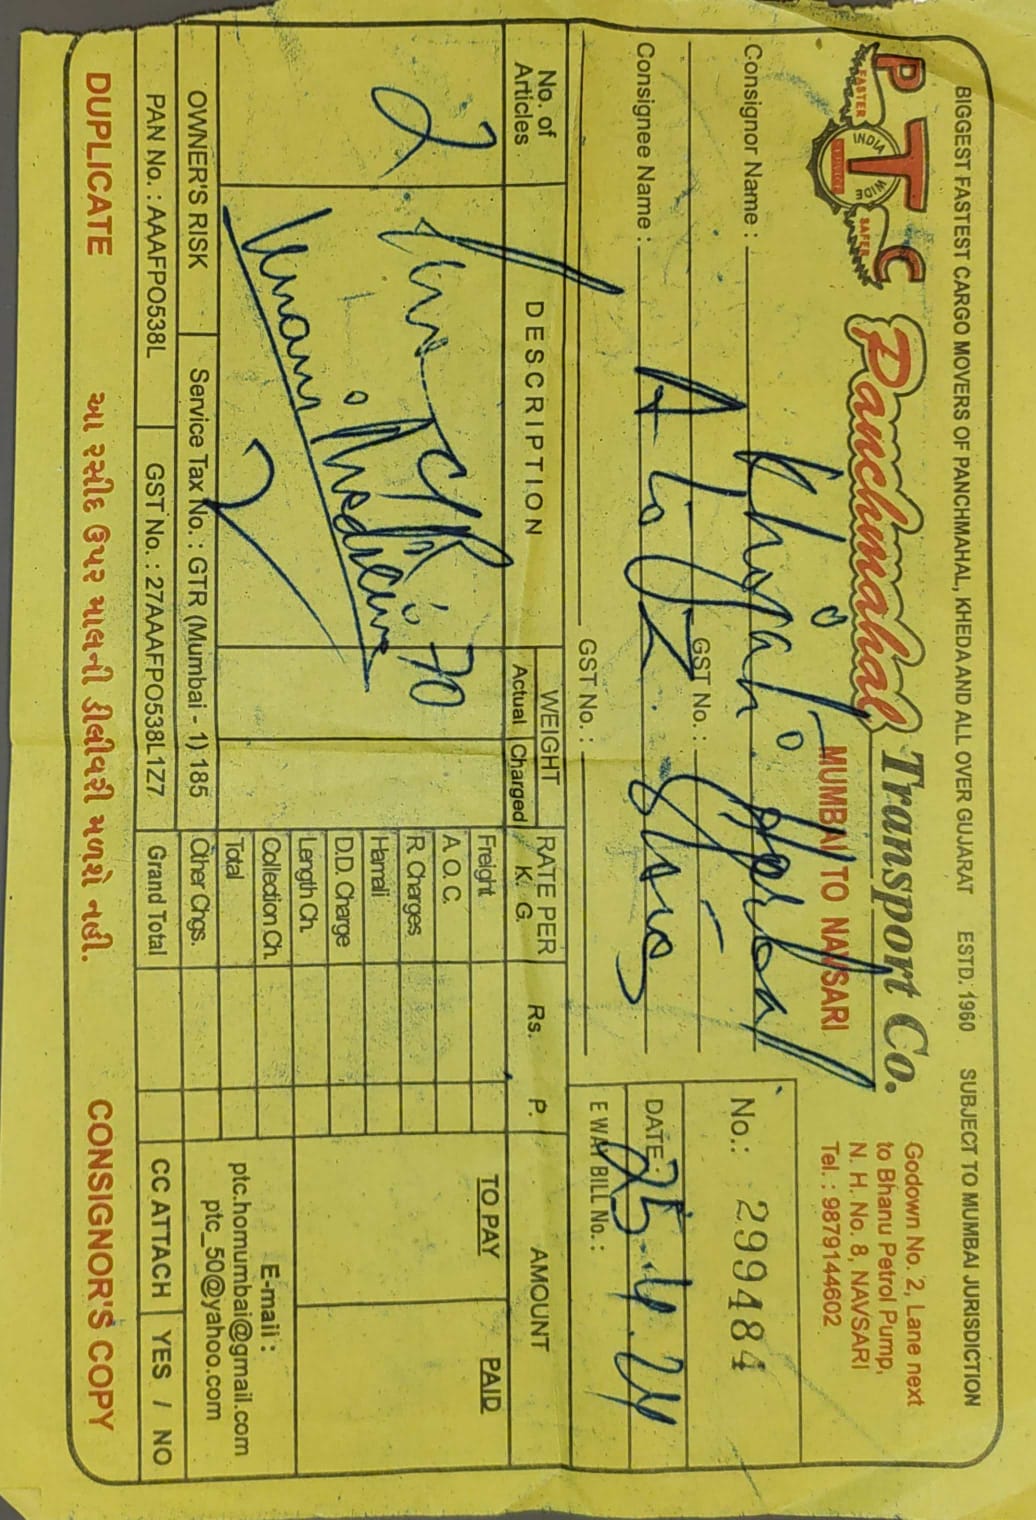 BIGGEST FASTEST CARGO MOVERS OF PANCHMAHAL, KHEDA AND ALL OVER GUJARAT ESTD. 1960 SUBJECT TO MUMBAI JURISDICTION
P T C
FASTER INDIA WIDE SERVICE SAFER
Panchmahal Transport Co.
MUMBAI TO NAVSARI
Godown No. 2, Lane next
to Bhanu Petrol Pump,
N. H. No. 8, NAVSARI
Tel. : 9879144602
Consignor Name : Khojati Herbal
GST No. :
No.: 299484
Consignee Name : A to Z Stores
DATE : 25.4.24
GST No. :
E WAY BILL No. :
No. of Articles DESCRIPTION WEIGHT Actual Charged RATE PER K. G. Rs. P. AMOUNT
2
70
Unani Medicine
Freight
A. O. C.
R. Charges
Hamali
D.D. Charge
Length Ch.
Collection Ch.
Total
Other Chgs.
Grand Total
TO PAY PAID
E-mail :
ptc.homumbai@gmail.com
ptc_50@yahoo.com
OWNER'S RISK Service Tax No. : GTR (Mumbai - 1) 185
PAN No. : AAAFPO538L GST No. : 27AAAFPO538L1Z7
CC ATTACH YES / NO
DUPLICATE આ રસીદ ઉપર માલની ડીલીવરી મળશે નહી. CONSIGNOR'S COPY